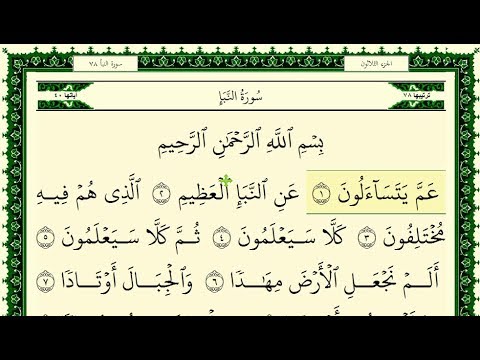 الجزء الثلاثون سورة النبأ ٧٨
ترتيبها ٧٨ سُورَةُ النَّبَإِ آياتها ٤٠
بِسْمِ ٱللَّهِ ٱلرَّحْمَٰنِ ٱلرَّحِيمِ
عَمَّ يَتَسَآءَلُونَ ١ عَنِ ٱلنَّبَإِ ٱلْعَظِيمِ ٢ ٱلَّذِى هُمْ فِيهِ
مُخْتَلِفُونَ ٣ كَلَّا سَيَعْلَمُونَ ٤ ثُمَّ كَلَّا سَيَعْلَمُونَ ٥
أَلَمْ نَجْعَلِ ٱلْأَرْضَ مِهَٰدًا ٦ وَٱلْجِبَالَ أَوْتَادًا ٧